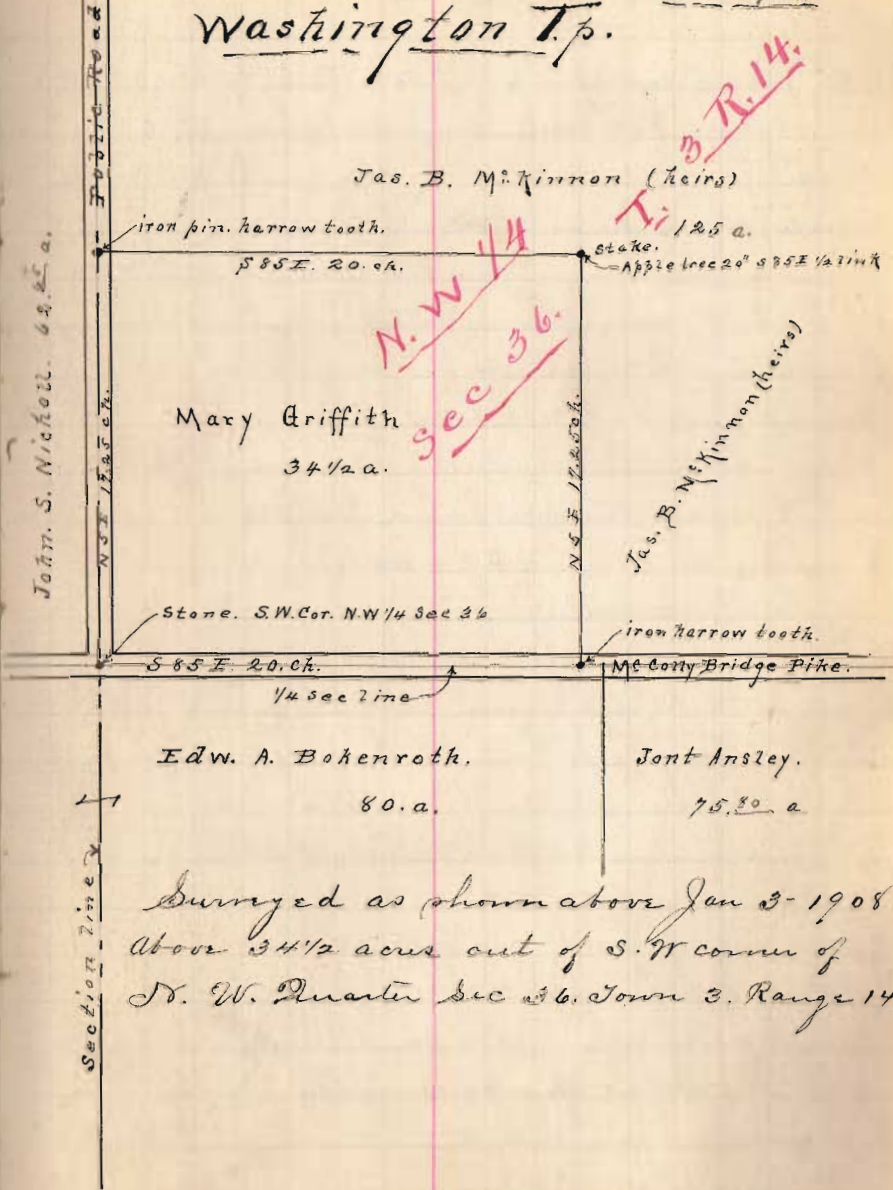 Washington T.p.
Public Road
T. 3 R.14.
Jas. B. McKinnon (heirs)
125 a.
iron pin. harrow tooth.
Stake.
Apple tree 20" S 85 E 1/2 link
S 85 E. 20. ch.
N.W 1/4
Sec 36.
John. S. Nicholl. a.
Mary Griffith
34 1/2 a.
N 5 E 17.25 ch.
N 5 E 17.25 ch.
Jas. B. McKinnon (heirs)
Stone. S.W. Cor. N.W 1/4 Sec 36
iron harrow tooth.
S 85 E 20. Ch.
McColly Bridge Pike.
1/4 Sec line
Edw. A. Bokenroth.
80. a.
Jont Ansley.
75.80 a
Section line
Surveyed as shown above Jan 3 - 1908
Above 34 1/2 acres out of S.W corner of
N. W. Quarter Sec 36. Town 3. Range 14